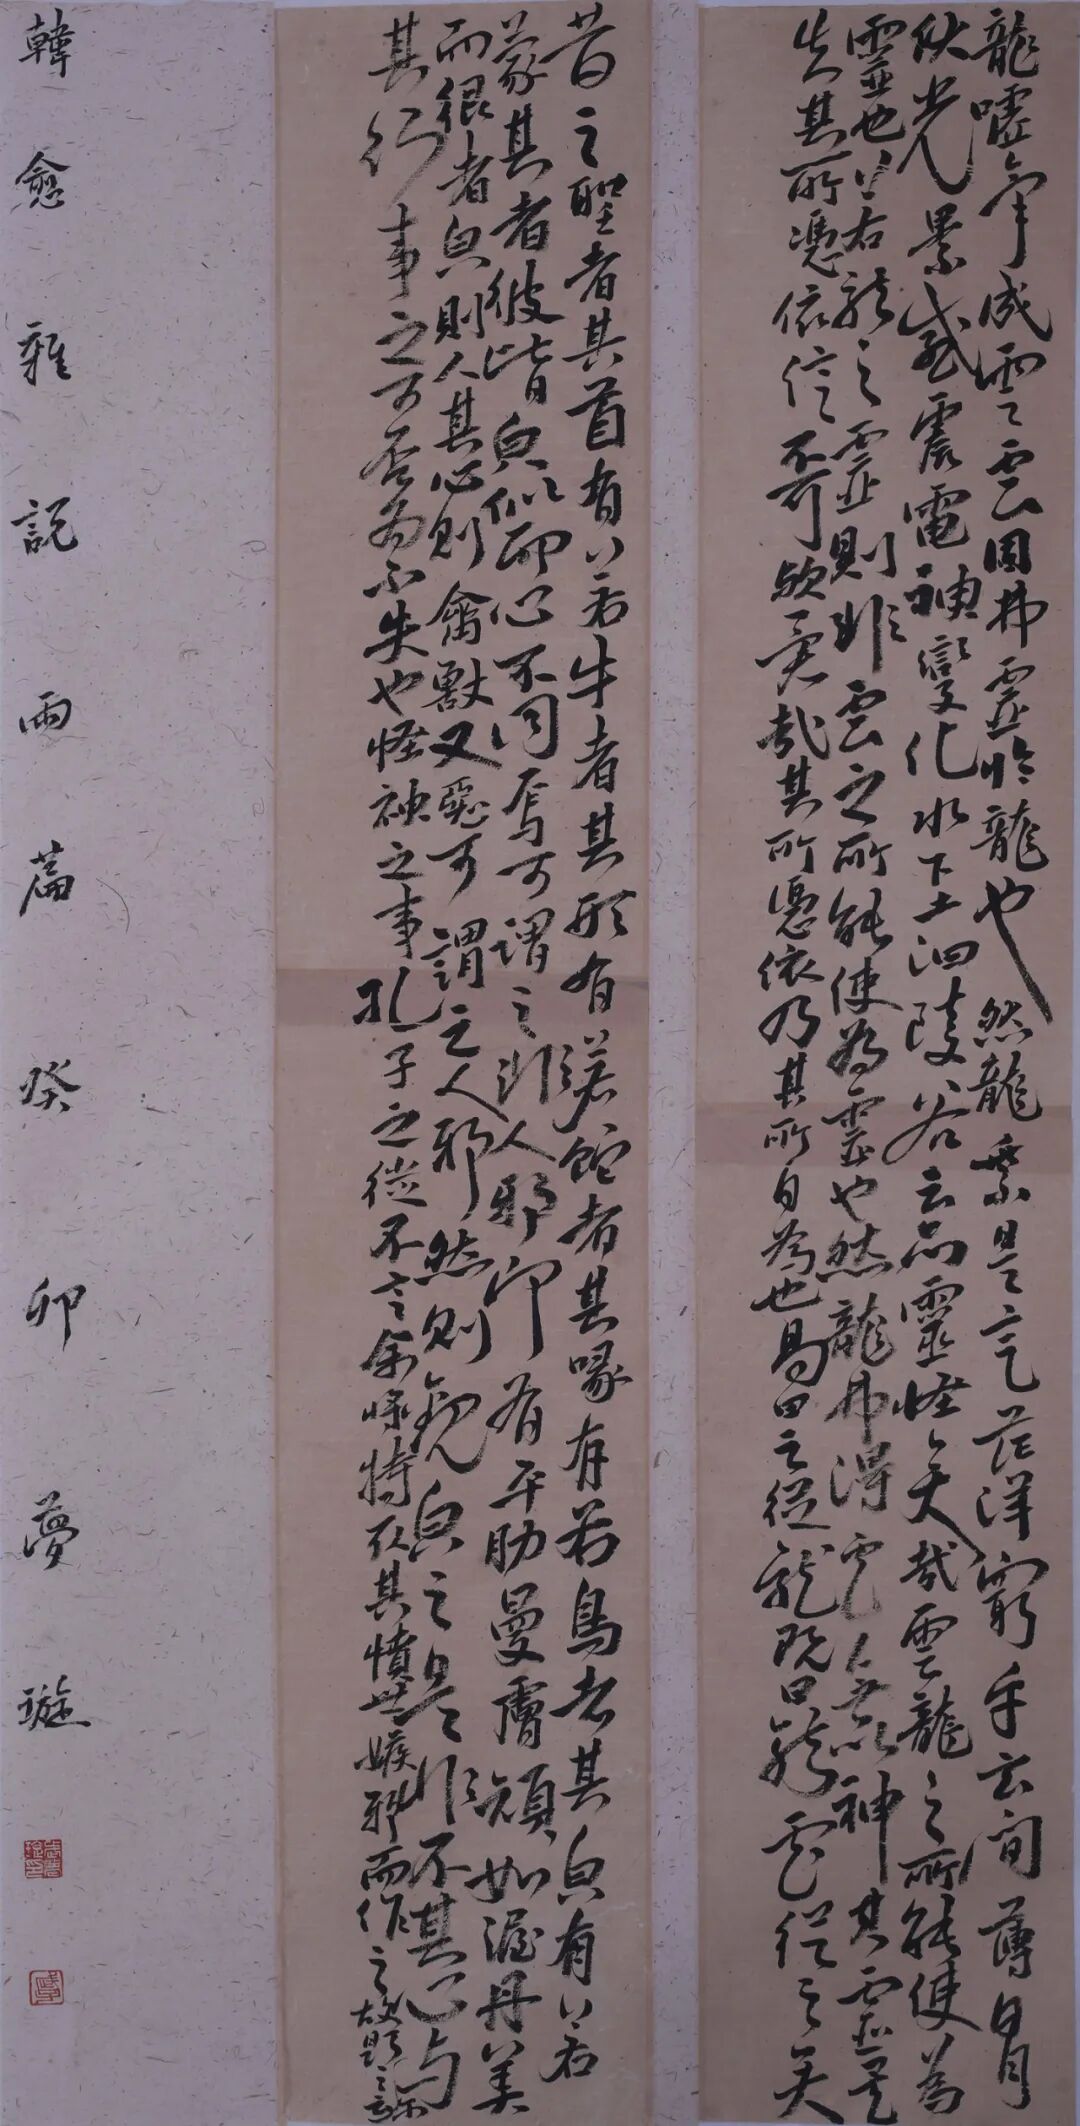 龍噓气成雲雲固弗靈於龍也然龍乘是气茫洋窮乎玄间薄日月
伏光景感震電神變化水下土汩陵谷云亦靈怪矣哉雲龍之所能使為
靈也若龍之靈則非雲之所能使為靈也然龍弗得雲无以神其靈矣
失其所憑依信不可欤異哉其所憑依乃其所自為也易曰云從龍既曰龍雲從之矣
昔之聖者其首有若牛者其形有若蛇者其喙有若鳥者其皃有若
蒙其者彼皆皃似而心不同焉可謂之非人邪即有平肋曼膚顏如渥丹美
而很者皃則人其心則禽獸又惡可謂之人邪然則觀皃之是非不其心与
其行事之可否為不失也怪神之事孔子之徒不言余將特取其憤世嫉邪而作之故題之云爾
韓愈雜說兩篇癸卯夢璇